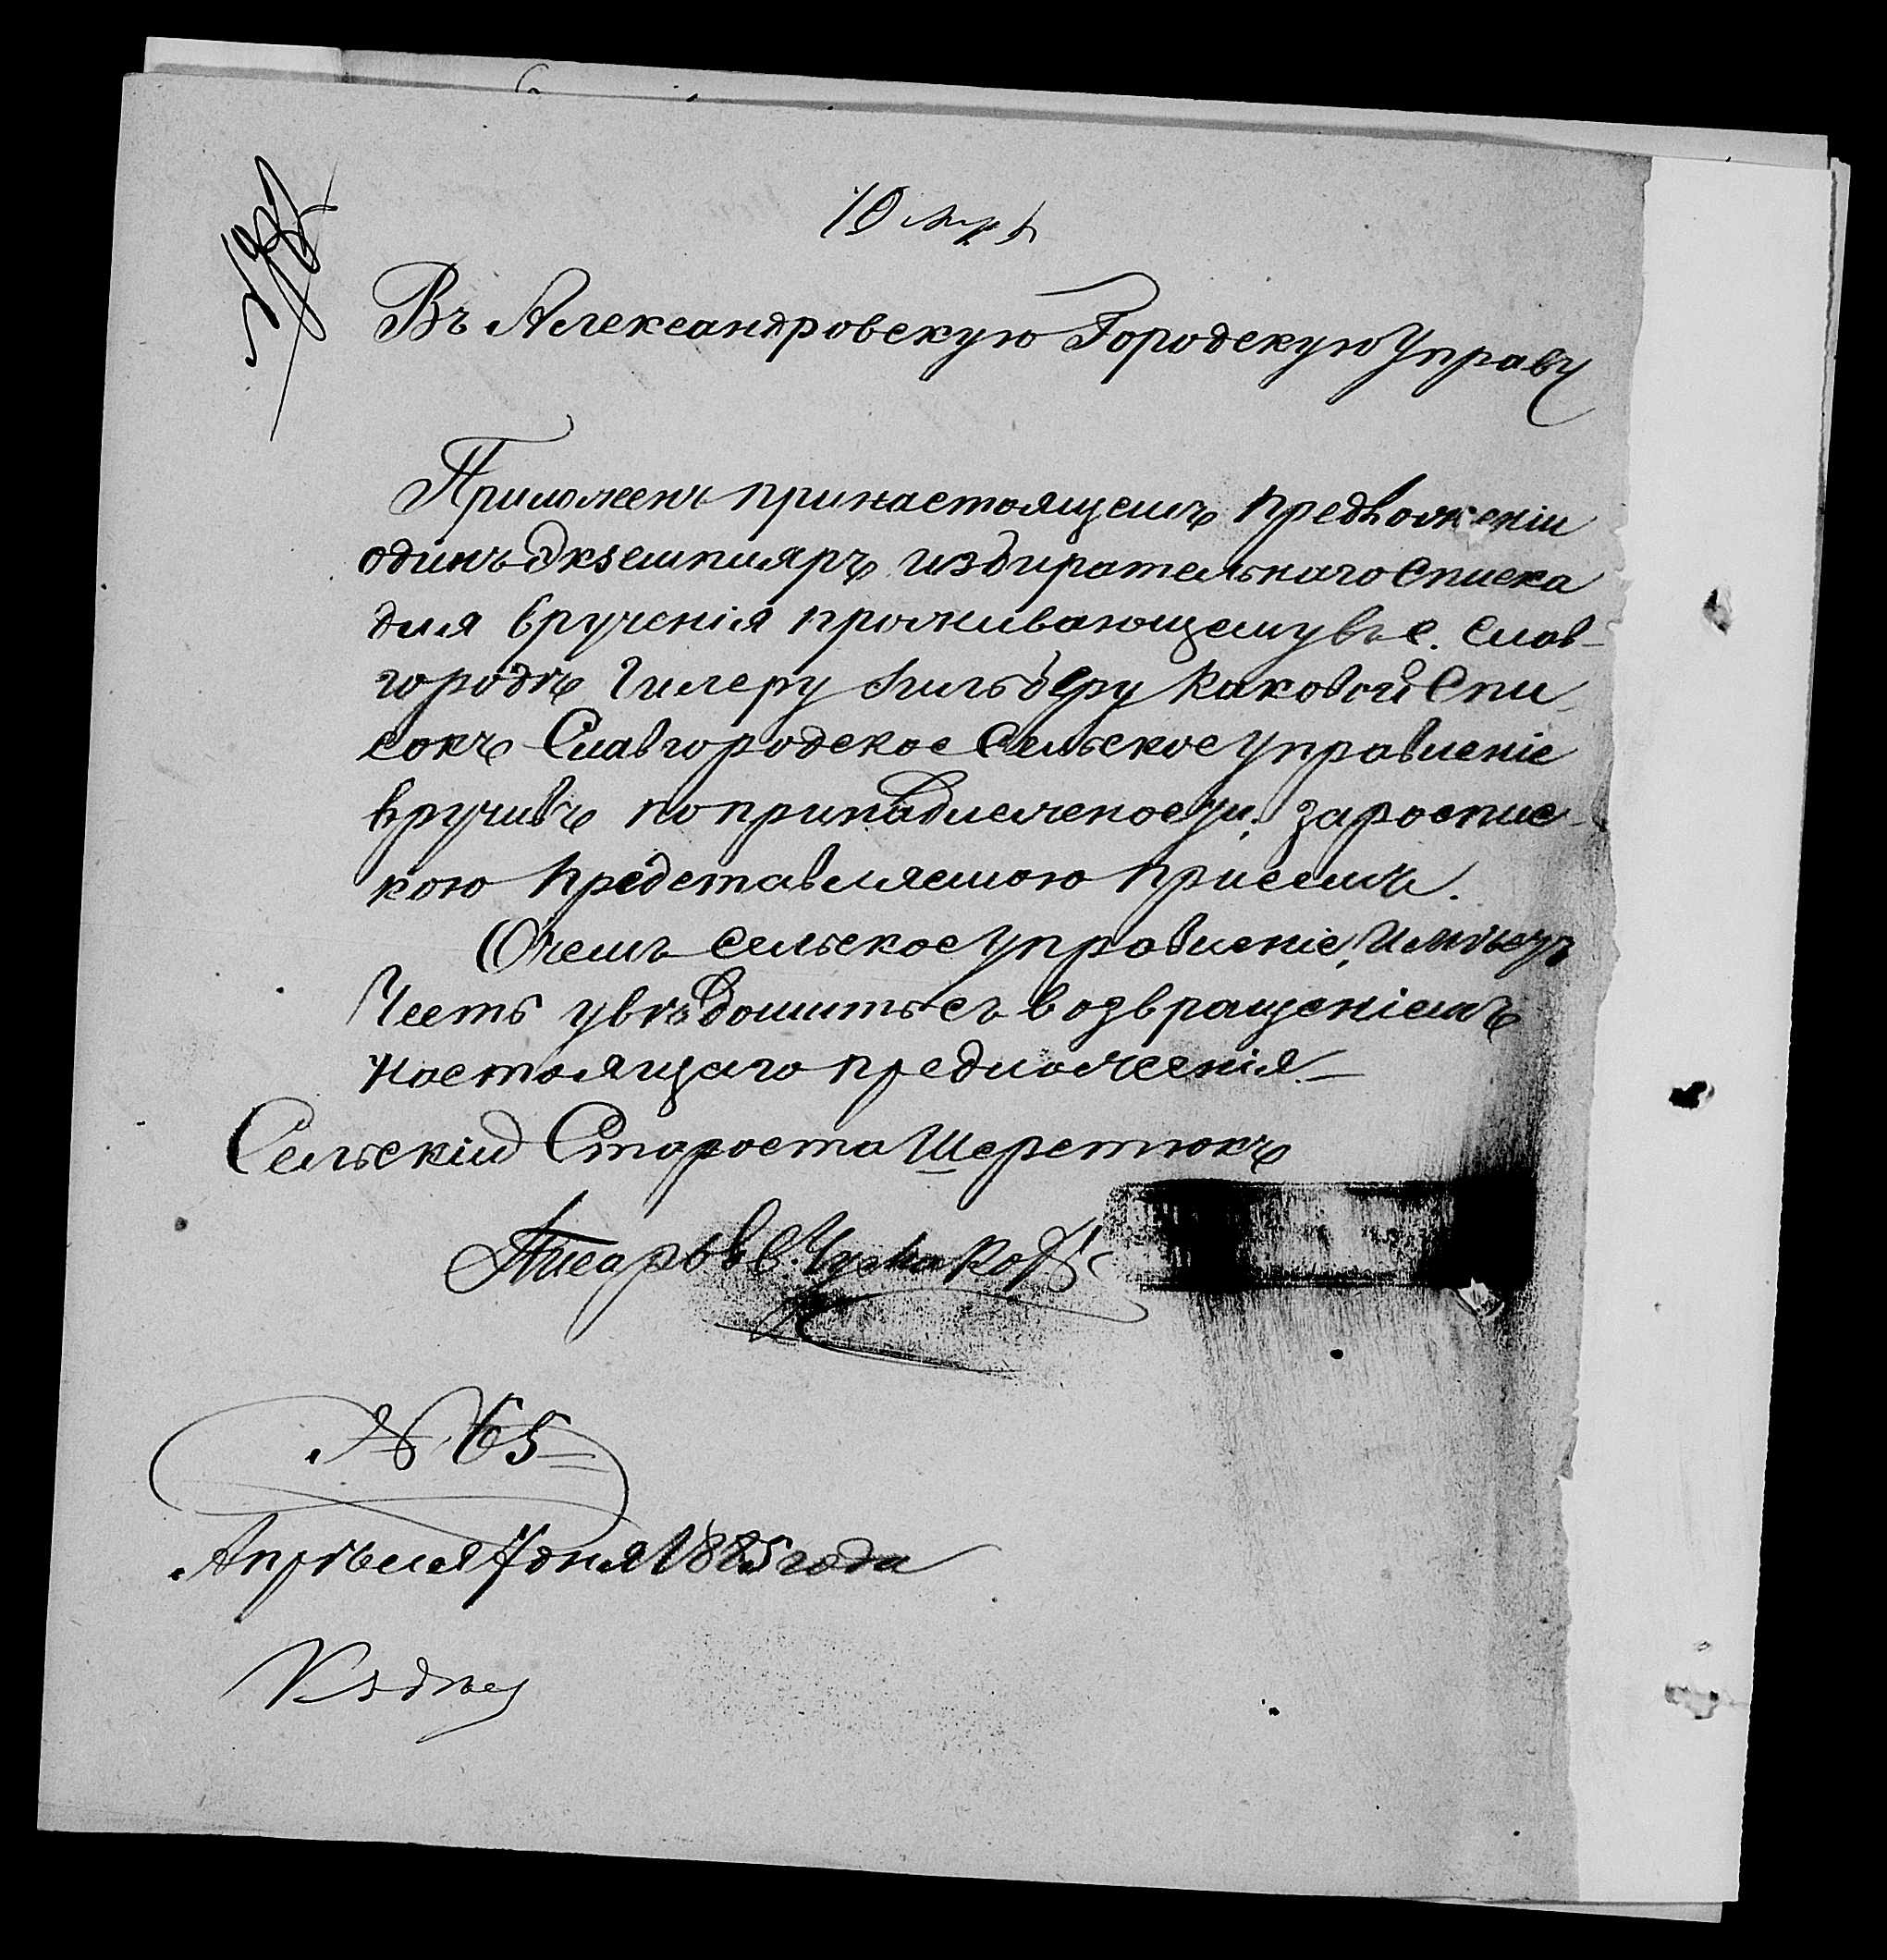 10 Апр
Въ Александровскую Городскую Управу
Приложенъ принастоящемъ предложеніи
одинъ Экземпляръ избирательнаго Списка
для врученія проживающему въ с. Слав-
городѣ Гилеру Зильберу каковой Спи
сокъ Славгородское Сельское Управленіе
вручивъ попринадлежености, заропис-
кою представляемою присемъ.
Очемъ Сельское управленіе, имѣетъ
Честь увѣдомить съ возвращеніемъ
настоящаго предложенія.—
Сельскій Староста Шеретюкъ
Писарь В. Чумаков
№ 65
Апрѣля 7 дня 1885 года
К дѣлу